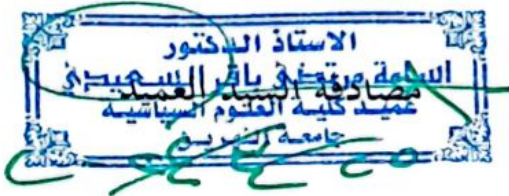 الاستاذ الدكتور
اسامة مرتضى باقر السعيدي
مصادقة السيد العميد
عميد كلية العلوم السياسية
جامعة النهرين